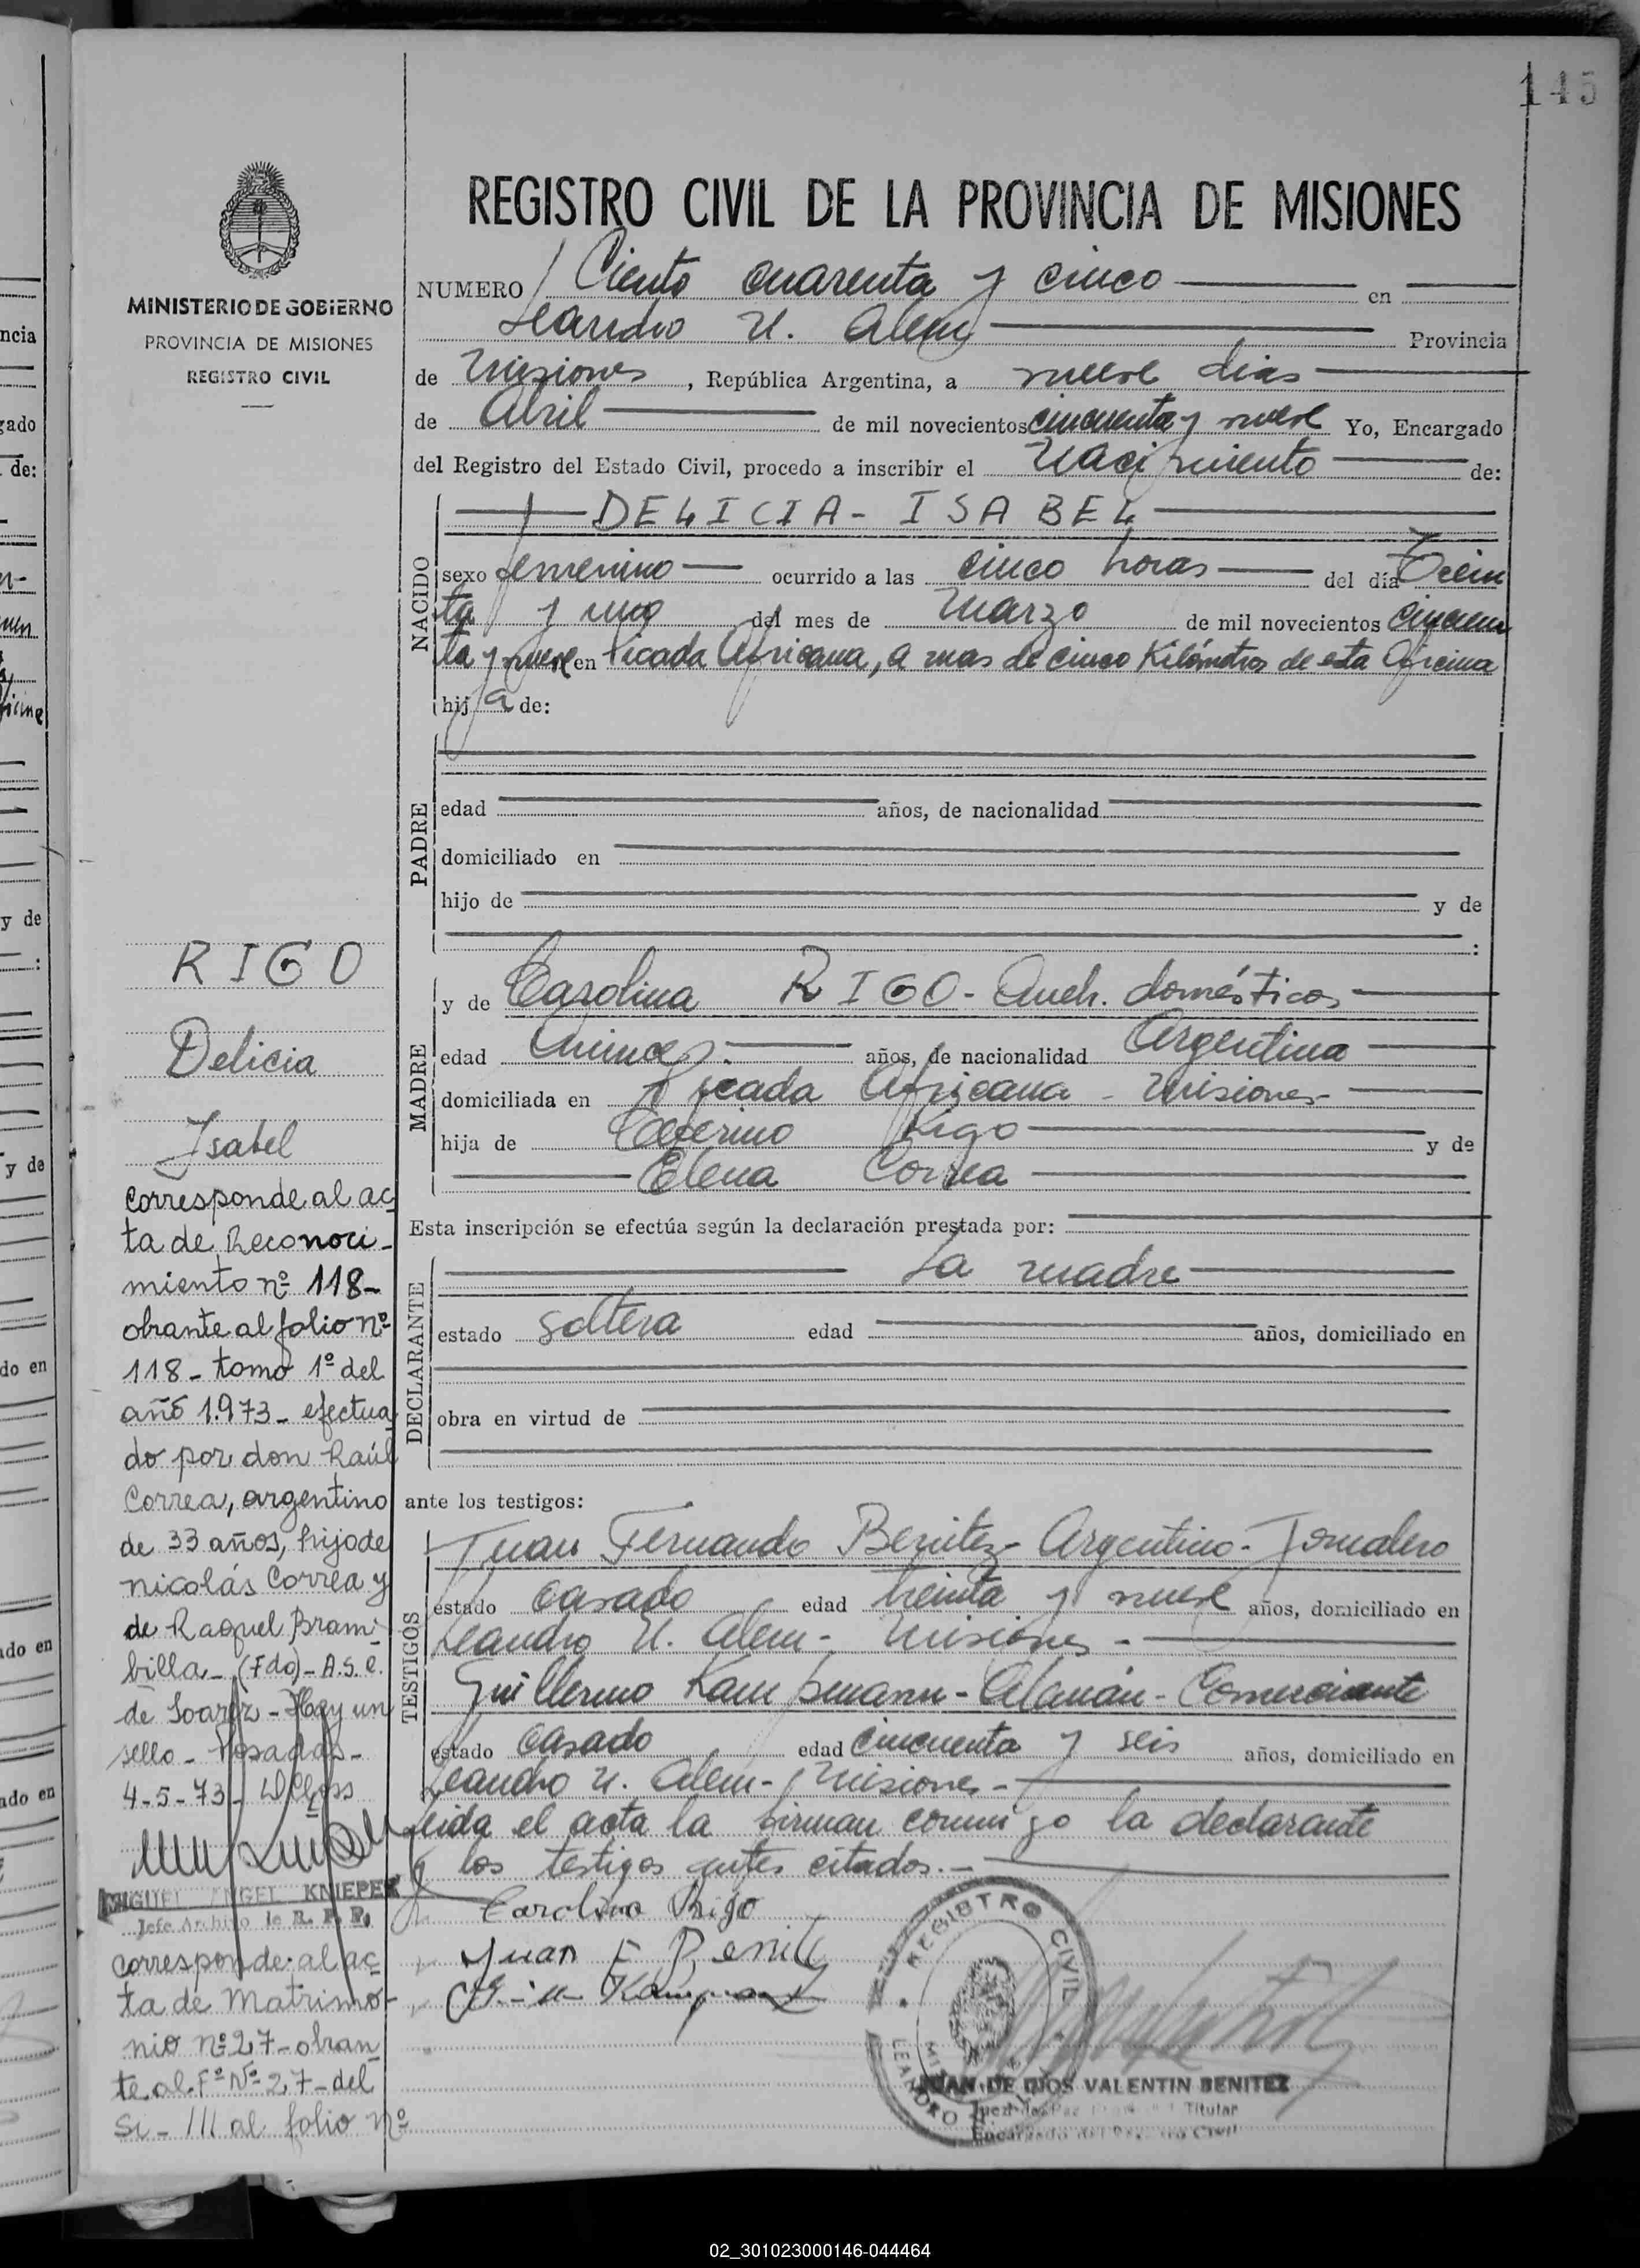 145
MINISTERIO DE GOBIERNO
PROVINCIA DE MISIONES
REGISTRO CIVIL
REGISTRO CIVIL DE LA PROVINCIA DE MISIONES
NUMERO Ciento cuarenta y cinco en
Leandro N. Alem Provincia
de Misiones, República Argentina, a nueve dias
de Abril de mil novecientos cincuenta y nueve Yo, Encargado
del Registro del Estado Civil, procedo a inscribir el Nacimiento de:
NACIDO
DELICIA - ISABEL
sexo femenino ocurrido a las cinco horas del día Trein
ta y uno del mes de Marzo de mil novecientos cincuen
ta y nueve en Picada Africana, a mas de cinco Kilómetros de esta Oficina
hija de:
PADRE
edad años, de nacionalidad
domiciliado en
hijo de y de
:
MADRE
y de Carolina RIGO - Queh. domésticos
edad Quince años, de nacionalidad Argentina
domiciliada en Picada Africana - Misiones
hija de Ceferino Rigo y de
Elena Correa
Esta inscripción se efectúa según la declaración prestada por:
DECLARANTE
La madre
estado soltera edad años, domiciliado en
obra en virtud de
ante los testigos:
TESTIGOS
Juan Fernando Benitez - Argentino - Jornalero
estado casado edad treinta y nueve años, domiciliado en
Leandro N. Alem - Misiones -
Guillermo Kampmann - Alemán - Comerciante
estado casado edad cincuenta y seis años, domiciliado en
Leandro N. Alem - Misiones -
Leida el acta la firman conmigo la declarante
y los testigos antes citados.-
Carolina Rigo
Juan F Benitez
Kampmann
REGISTRO CIVIL
LEANDRO
JUAN DE DIOS VALENTIN BENITEZ
Juez de Paz Titular
Encargado del Registro Civil
RIGO
Delicia
Isabel
Corresponde al ac
ta de Reconoci-
miento nº 118-
obrante al folio nº
118 - tomo 1º del
año 1.973 - efectua
do por don Raúl
Correa, argentino
de 33 años, hijo de
Nicolás Correa y
de Raquel Bram
billa - (Fdo) - A.S.C.
de Soaróz - Hay un
sello - Posadas -
4-5-73
MIGUEL ANGEL KNIEPER
Jefe Archivo de R. P. P.
Corresponde al ac
ta de Matrimo-
nio nº 27 - obran
te al Fº Nº 27 - del
Si - III al folio nº
ncia
gado
de:
y de
:
y de
do en
ado en
ado en
02_301023000146-044464